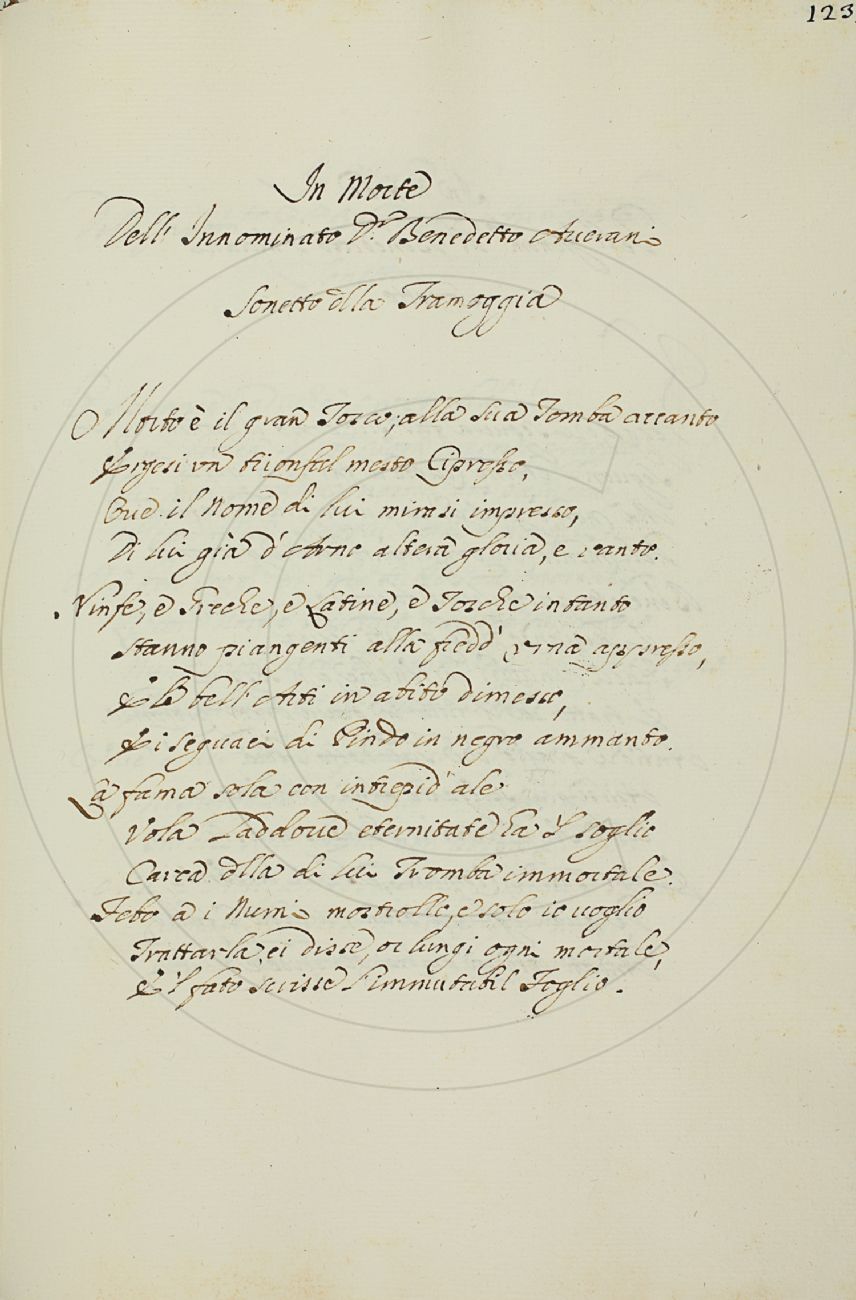 123
In Morte
Dell' Innominato Dr. Benedetto Averani
Sonetto dlla Tramoggia
Morto è il gran Tosco, alla sua Tomba accanto
Ergesi un trionfal mesto Cipresso,
Ove il Nome di lui mirasi impresso,
Di lui già d'Arno altera gloria, e vanto.
Ninfe, e Greche, e Latine, e Tosche intanto
Stanno piangenti alla fredd' urna appresso,
E le bell' Arti in abito dimesso,
E i seguaci di Pindo in negro ammanto.
La fama sola con intrepid' ale
Vola Laddove eternitate ha 'l soglio
Carca dlla di lui Tromba immortale.
Febo a i Numi mostrolle, e solo io voglio
Trattarla, ei disse, or lungi ogni mortale,
E 'l fato scrisse l'immutabil Foglio.